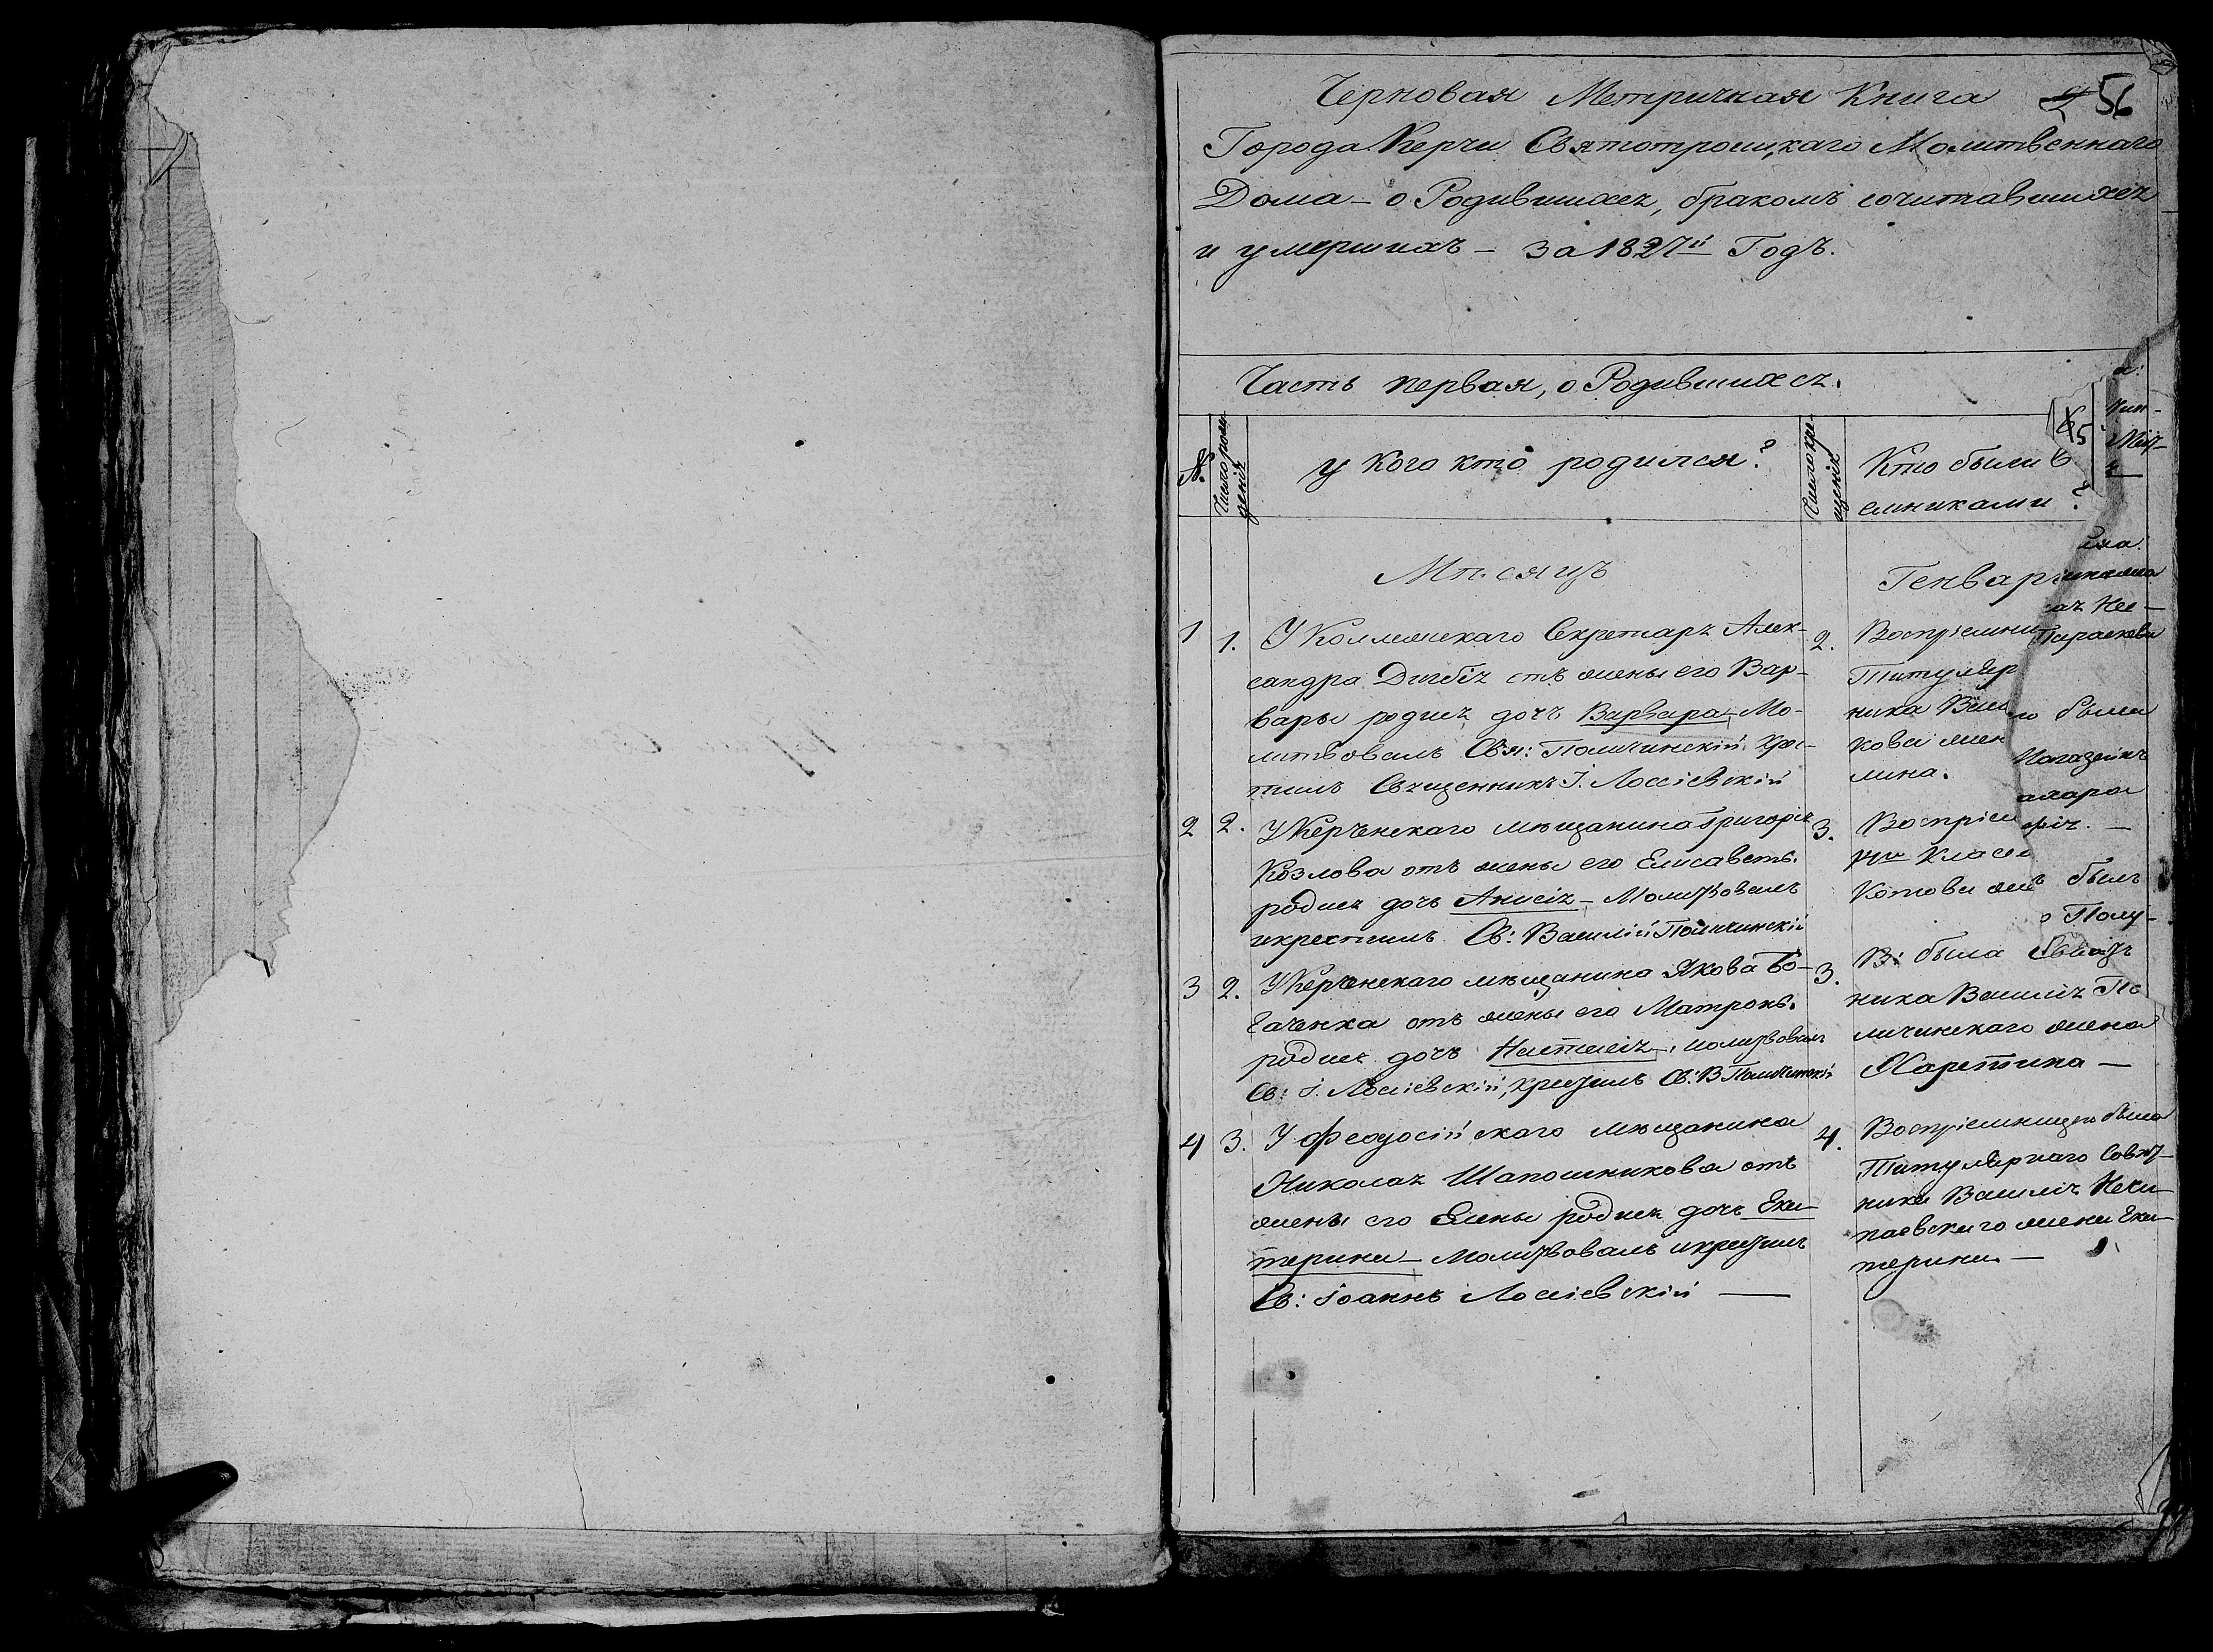 Черновая Метричная Книга 56
Города Керчи Святотроицкаго Молитвеннаго
Дома – о Родившихся, бракомъ сочитавшихся
и умершихъ – за 1827й Годъ.
Часть первая, о Родившихся.
№
Число рож-
денія
у Кого кто родился?
Число кре-
щенія
Кто были
емниками?
Мѣсяцъ
Генвар
1 1. У Коллежскаго Секретаря Алек-
сандра Дигбія отъ жены его Вар-
вары родися дочь Варвара, Мо-
литвовалъ Свя: Поличинскій Крес-
тилъ Священникъ І. Лоссіевскій
2. Воспріемни
Титуляр
ника Васи
кова жен
лина.
2 2. У Керченскаго мѣщанина Григорія
Козлова отъ жены его Елисаветы
родися дочь Анисія – Молитвовалъ
и крестилъ Св: Василій Поличинскій
3. Воспріем
14го Класса
Котова
3 2. У Керченскаго мѣщанина Якова Бо-
гаченка отъ жены его Матроны
родися дочь Настасія, молитвовалъ
Св: І. Лоссіевскій, крестилъ Св: В Поличинскій
3. В: была Свящ
ника Василія По
личинскаго жена
Харетина –
4 3. У Феодосійскаго мѣщанина
Николая Шапошникова отъ
жены его Елены родися дочь Ека-
терина – Молитвовалъ и крестилъ
Св: Іоаннъ Лоссіевскій —
4. Воспріемницею была
Титулярнаго Совѣт-
ника Василія
жена Ека-
терина –
Параскева
были
былъ